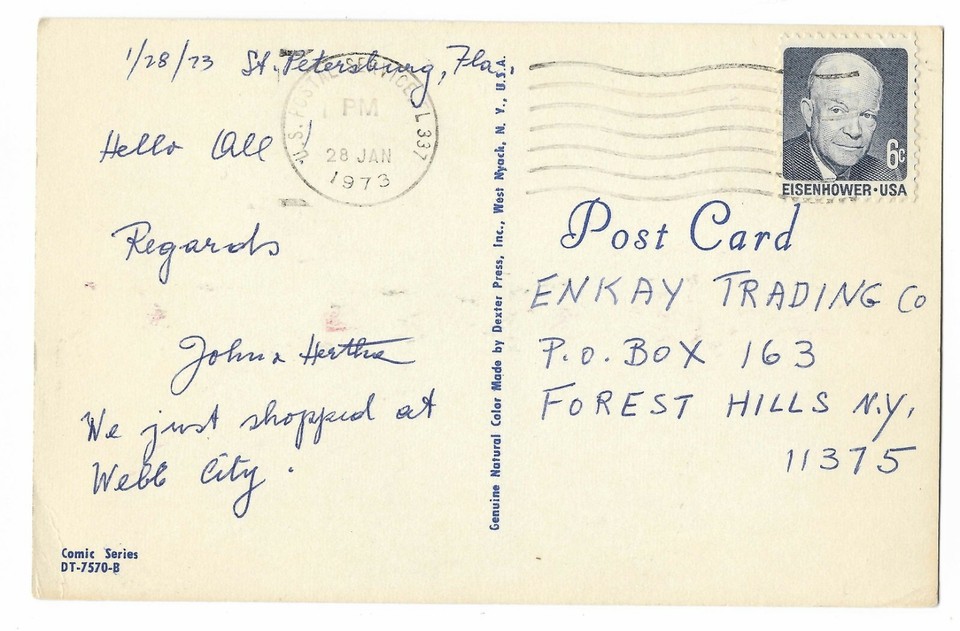 1/28/73 St. Petersburg, Fla.
Hello All!
Regards
John & Hertha
We just shopped at
Webb City.
Comic Series
DT-7570-B
U.S. POSTAL SERVICE FL 337
PM
28 JAN
1973
Genuine Natural Color Made by Dexter Press, Inc., West Nyack, N. Y., U.S.A.
6c
EISENHOWER·USA
Post Card
ENKAY TRADING Co
P.O. BOX 163
FOREST HILLS N.Y.
11375